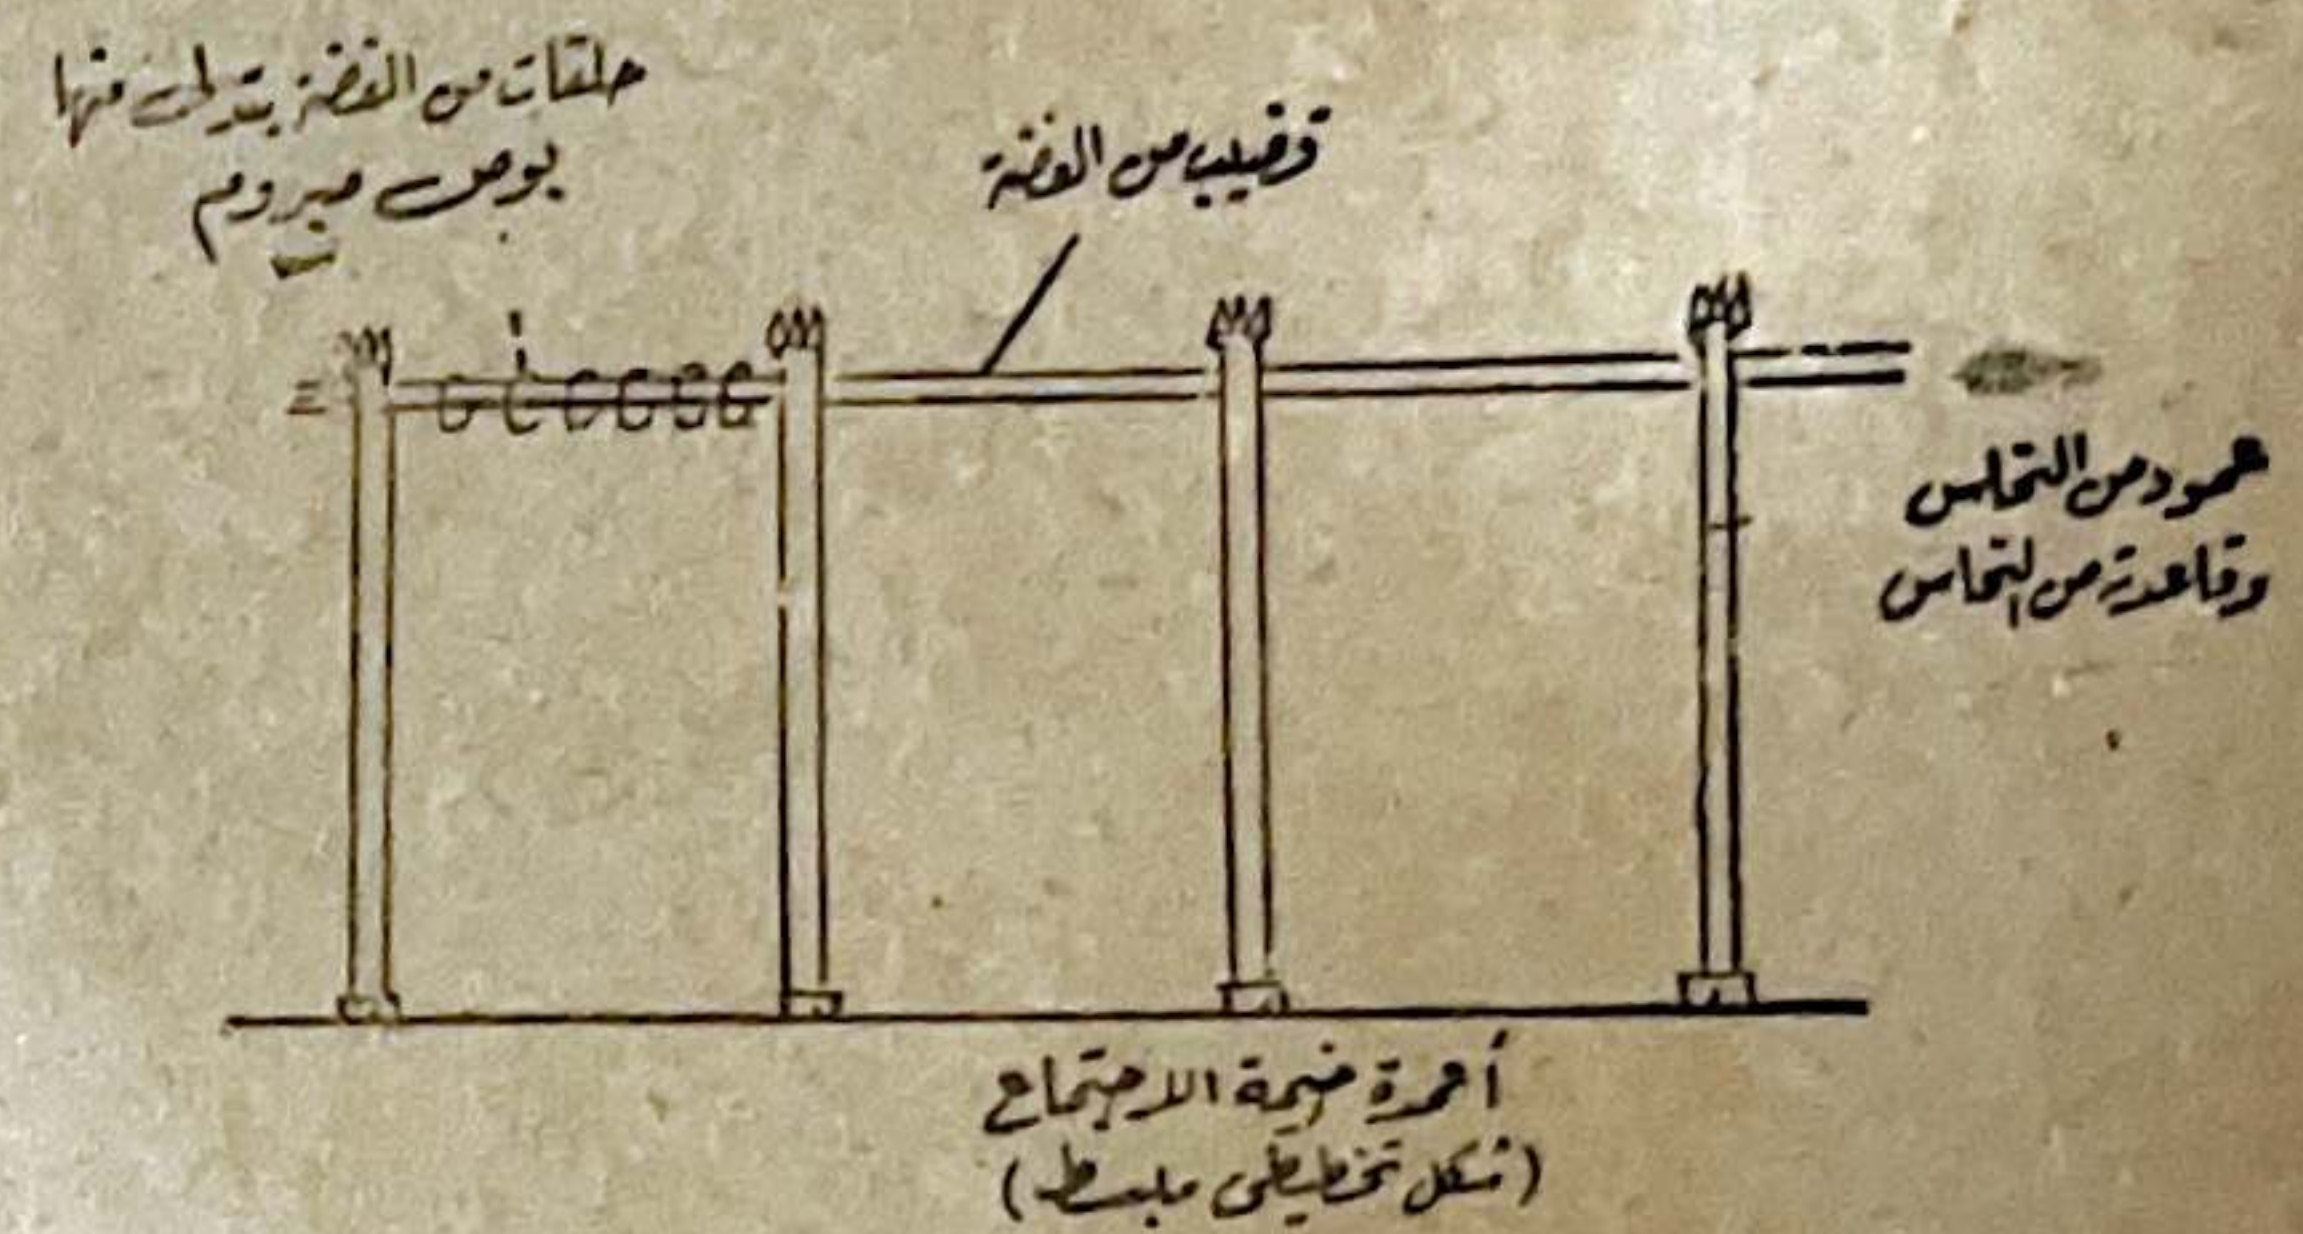 حلقات من الفضة يتدلى منها
بوص مبروم
قضيب من الفضة
عمود من النحاس
وقاعدة من النحاس
أعمدة خيمة الاجتماع
(شكل تخطيطى مبسط)